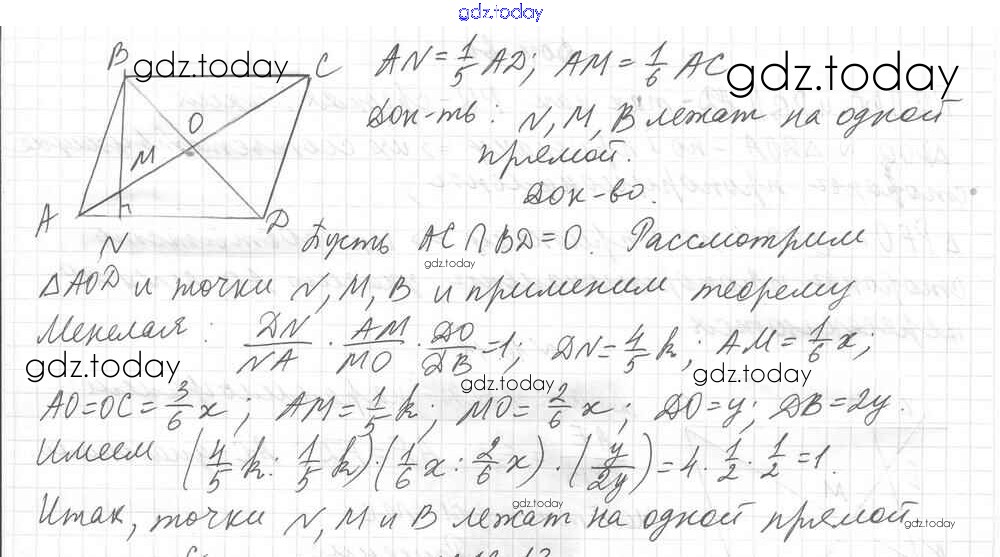 gdz.today
B gdz.today C AN = 1/5 AD; AM = 1/6 AC gdz.today
O Док-ть: N, M, B лежат на одной
M прямой.
Док-во.
A N D Пусть AC ∩ BD = O. Рассмотрим
gdz.today
ΔAOD и точки N, M, B и применим теорему
Менелая: DN/NA · AM/MO · DO/DB = 1; DN = 4/5 k; AM = 1/6 x;
gdz.today gdz.today gdz.today
AO = OC = 3/6 x; AM = 1/5 k; MO = 2/6 x; DO = y; DB = 2y.
Имеем (4/5 k : 1/5 k) · (1/6 x : 2/6 x) · (y/2y) = 4 · 1/2 · 1/2 = 1.
gdz.today
Итак, точки N, M и B лежат на одной прямой
gdz.today